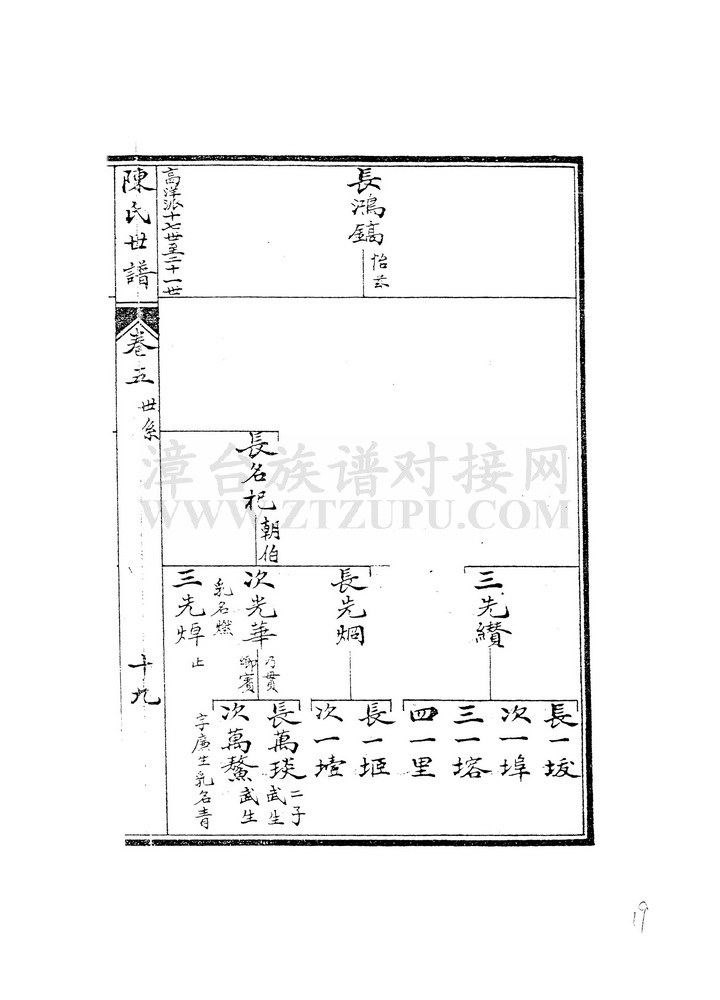 長鴻鎬
怡茲
高洋派十七世至二十一世
陳氏世譜
卷五
世系
十九
長名杞
朝伯
三先纘
長先烱
次光華
乃貫
聊賓
乳名燃
三先焯
止
長一坺
次一埠
三一塎
四一里
長一垣
次一壇
長萬琰
武生
二子
次萬鰲
武生
字廣生乳名青
漳台族谱对接网
WWW.ZTZUPU.COM
19